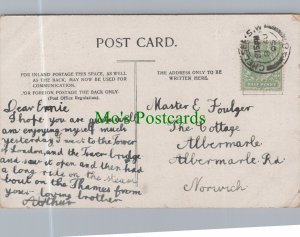 POST CARD.
FOR INLAND POSTAGE THIS SPACE, AS WELL
AS THE BACK, MAY NOW BE USED FOR
COMMUNICATION.
FOR FOREIGN POSTAGE THE BACK ONLY.
(Post Office Regulation).
THE ADDRESS ONLY TO BE
WRITTEN HERE.
HALF PENNY
Mo's Postcards
Dear Ernie
I hope you are
am enjoying myself much
yesterday I went to the Tower
of London, and the Tower bridge
and saw it open and then had
a long ride on the steam
boat on the Thames from
your loving brother
Arthur
Master E Foulger
The Cottage
Albermarle
Albermarle Rd
Norwich